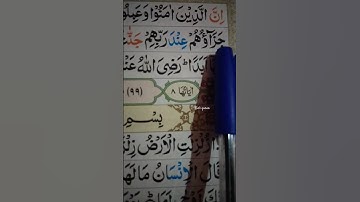 اِنَّ الَّذِيْنَ اٰمَنُوْا وَعَمِلُوا
جَزَآؤُهُمْ عِنْدَ رَبِّهِمْ جَنّٰتُ
اَبَدًا ؕ رَضِىَ اللّٰهُ عَنْ
اٰيَاتُهَا ٨ (٩٩)
بِسْمِ
زُلْزِلَتِ الْاَرْضُ زِلْزَ
قَالَ الْاِنْسَانُ مَا لَهَا